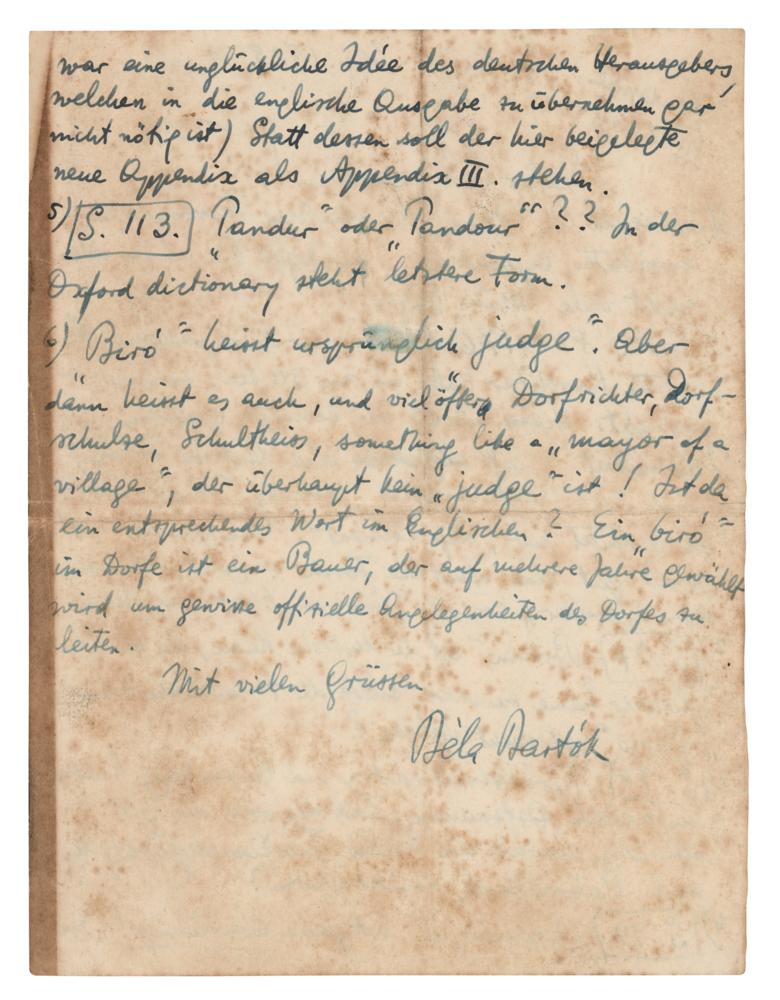 war eine unglückliche Idée des deutschen Herausgebers,
welchen in die englische Ausgabe zu übernehmen gar
nicht nötig ist) Statt dessen soll der hier beigelegte
neue Appendix als Appendix III. stehen.
5) S. 113. „Tandur“ oder „Tandour“ ?? In der
Oxford dictionary steht letztere Form.
6) „Biró“ heisst ursprünglich „judge“. Aber
dann heisst es auch, und viel öfter Dorfrichter, Dorf-
schulze, Schultheiss, something like a „mayor of a
village“, der überhaupt kein „judge“ ist! Ist da
ein entsprechendes Wort im Englischen? Ein „biró“
im Dorfe ist ein Bauer, der auf mehrere Jahre gewählt
wird um gewisse offizielle Angelegenheiten des Dorfes zu
leiten.
Mit vielen Grüssen
Béla Bartók